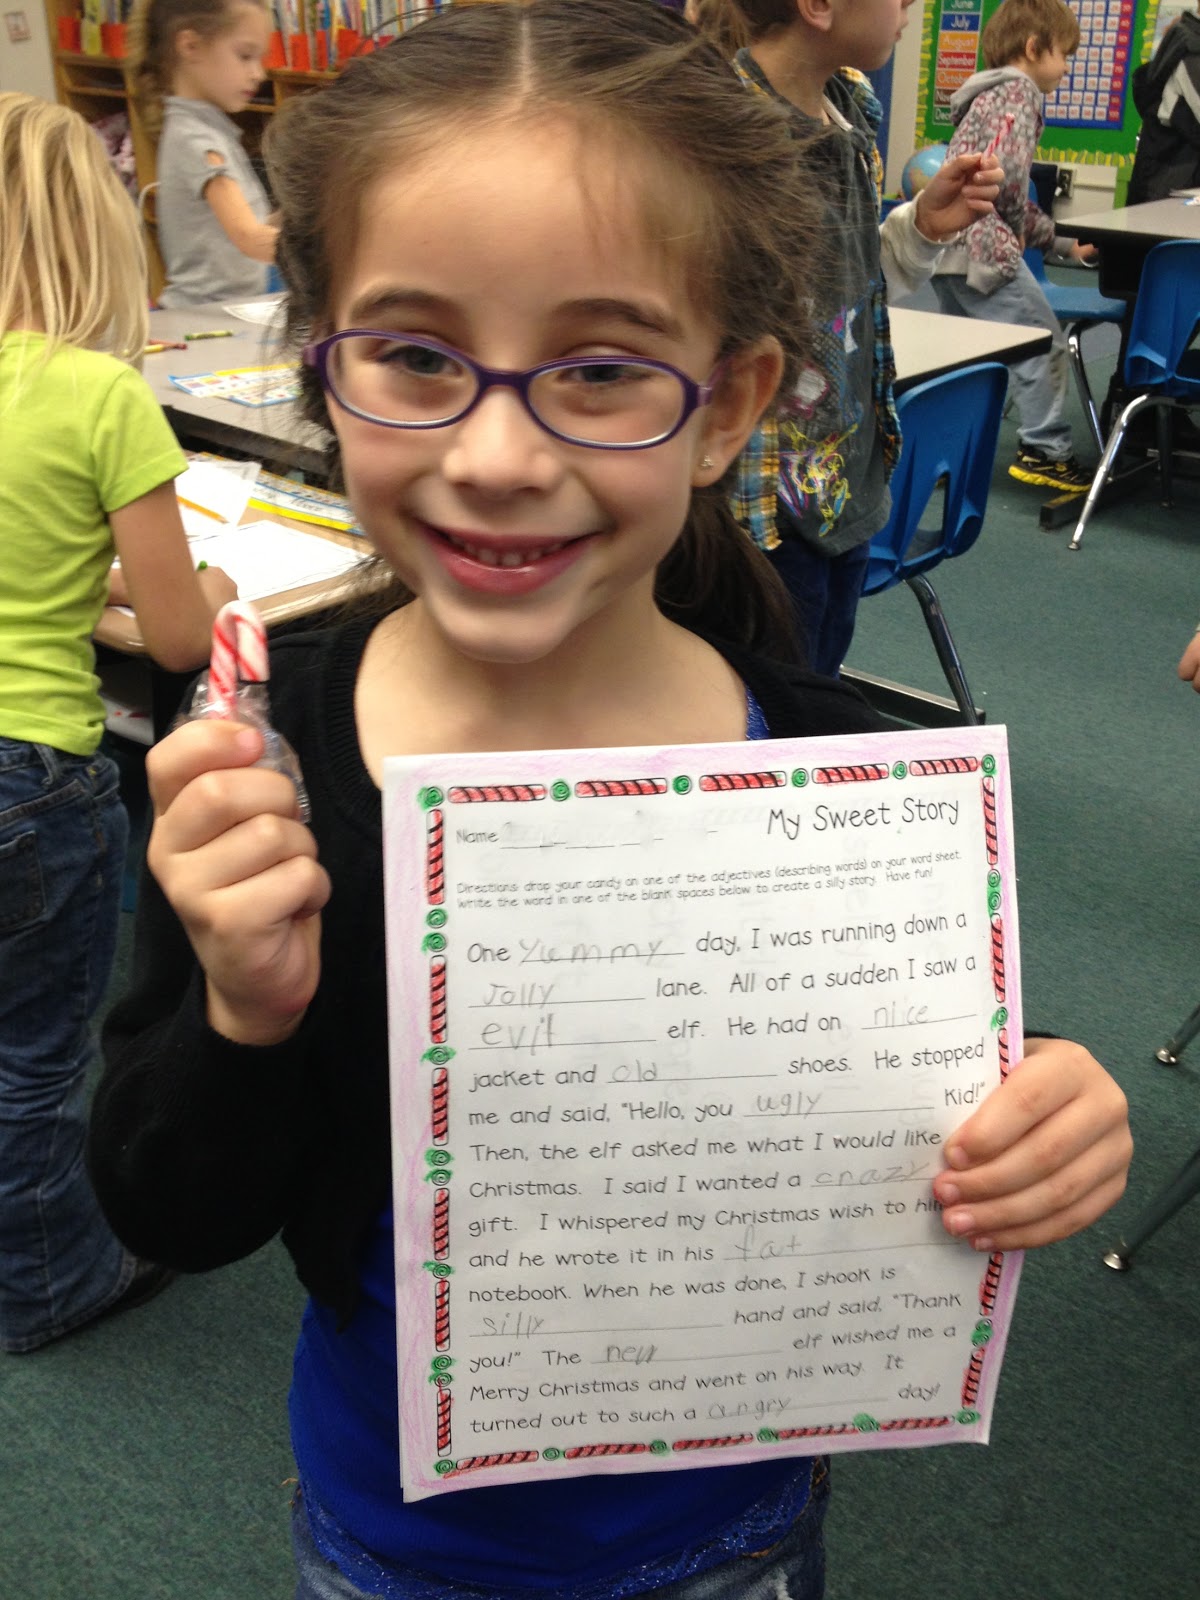 June
July
August
September
October
My Sweet Story
Name
Directions: drop your candy on one of the adjectives (describing words) on your word sheet.
Write the word in one of the blank spaces below to create a silly story. Have fun!
One yummy day, I was running down a
Jolly lane. All of a sudden I saw a
evil elf. He had on nice
jacket and old shoes. He stopped
me and said, "Hello, you ugly Kid!"
Then, the elf asked me what I would like
Christmas. I said I wanted a crazy
gift. I whispered my Christmas wish to
and he wrote it in his fat
notebook. When he was done, I shook is
silly hand and said, "Thank
you!" The new elf wished me a
Merry Christmas and went on his way. It
turned out to such a angry day!